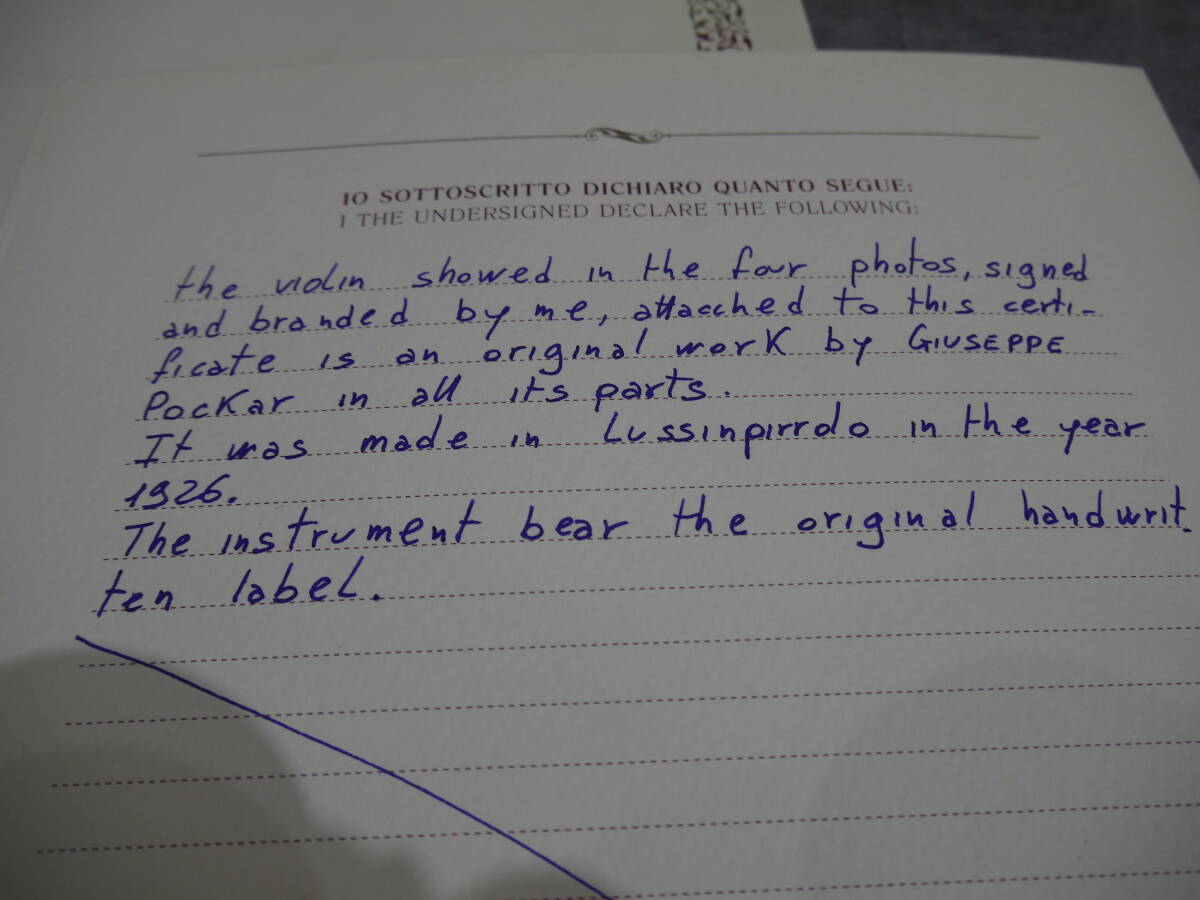 IO SOTTOSCRITTO DICHIARO QUANTO SEGUE:
I THE UNDERSIGNED DECLARE THE FOLLOWING:
the violin showed in the four photos, signed
and branded by me, attacched to this certi-
ficate is an original work by GIUSEPPE
Pockar in all its parts.
It was made in Lussinpirrolo in the year
1926.
The instrument bear the original handwrit-
ten label.